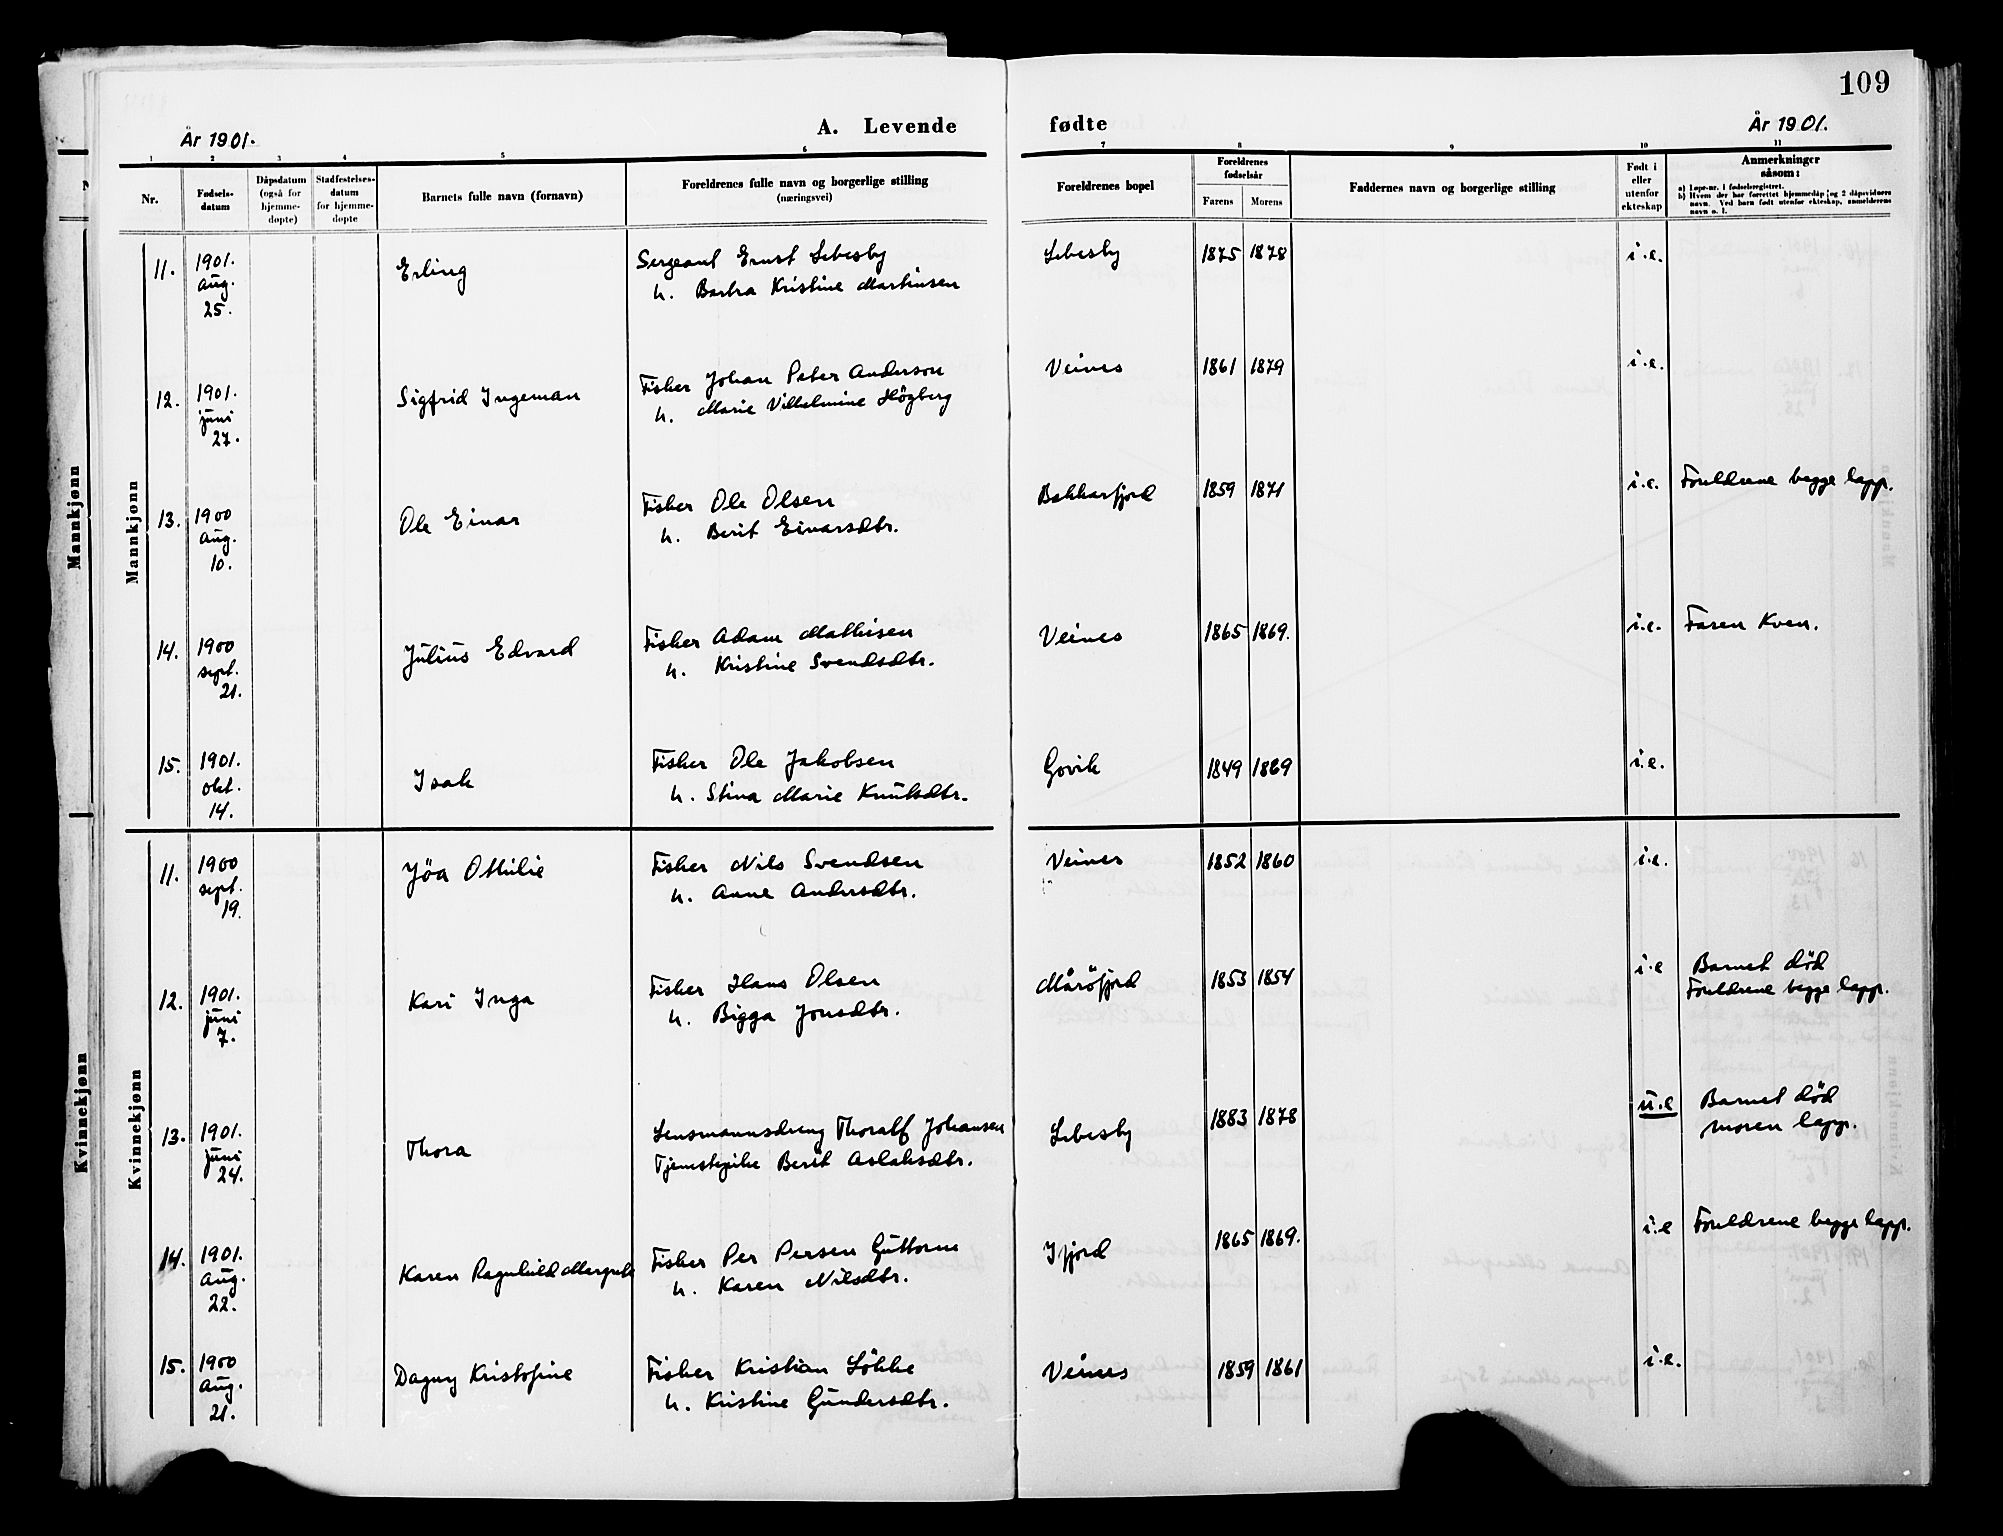 109
År 1901.
A. Levende fødte
År 1901.
1 2 3 4 5 6 7 8 9 10 11
Nr.
Fødsels-
datum
Dåpsdatum
(også for
hjemme-
døpte)
Stadfestelses-
datum
for hjemme-
døpte
Barnets fulle navn (fornavn)
Foreldrenes fulle navn og borgerlige stilling
(næringsvei)
Foreldrenes bopel
Foreldrenes
fødselsår
Farens Morens
Faddernes navn og borgerlige stilling
Født i
eller
utenfor
ekteskap
Anmerkninger
såsom:
a) Løpe-nr. i fødselsregistret.
b) Hvem der har forrettet hjemmedåp og 2 dåpsvidners
navn. Ved barn født utenfor ekteskap, anmelderens
navn o. l.
Mannkjønn
Mannkjønn
11. 1901. Aug. 25. Erling Sergeant Ernst Lebesby Lebesby 1875 1878 i.e.
h. Barbra Kristine Martinsen
12. 1901. juni 27. Sigfrid Ingeman Fisker Johan Peter Anderson Veines 1861 1879 i.e.
h. Marie Vilhelmine Högberg
13. 1900 Aug. 10. Ole Einar Fisker Ole Olsen Bakkarfjord 1859 1871 i.e. Foreldrene begge lapp.
h. Berit Einarsdtr.
14. 1900 sept. 21. Julius Edvard Fisker Adam Mathisen Veines 1865 1869. i.e. Faren Kven.
h. Kristine Svendsdtr.
15. 1901. okt. 14. Isak Fisker Ole Jakobsen Govik 1849 1869 i.e.
h. Stina Marie Knutsdtr.
Kvinnekjønn
Kvinnekjønn
11. 1900 sept. 19. Jöa Othilie Fisker Nils Svendsen Veines 1852 1860 i.e.
h. Anne Andersdtr.
12. 1901. juni 7. Kari Inga Fisker Hans Olsen Måröfjord 1853 1854 i.e Barnet död
h. Bigga Jonsdtr. Foreldrene begge lapp.
13. 1901. juni 24. Thora Lensmannsdreng Thoralf Johansen Lebesby 1883 1878 u.e Barnet död
Tjenestepike Berit Aslaksdtr. moren lapp.
14. 1901. Aug. 22. Karen Ragnhild Margrete Fisker Per Persen Guttorm Ifjord 1865 1869. i.e Foreldrene begge lapp.
h. Karen Nilsdtr.
15. 1900 Aug. 21. Dagny Kristofine Fisker Kristian Lökke Veines 1859 1861 i.e.
h. Kristine Gundersdtr.